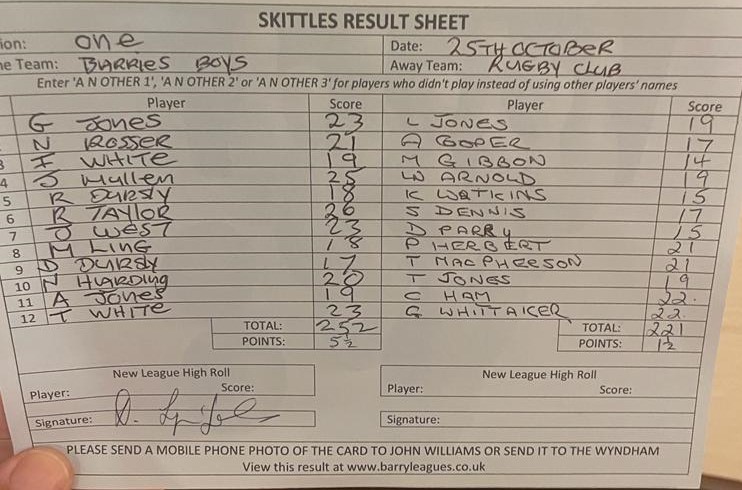 SKITTLES RESULT SHEET
ion: one Date: 25TH OCTOBER
me Team: BARRIES BOYS Away Team: RUGBY CLUB
Enter 'A N OTHER 1', 'A N OTHER 2' or 'A N OTHER 3' for players who didn't play instead of using other players' names
Player Score Player Score
G JONES 23 L JONES 19
N ROSSER 21 A COOPER 17
3 I WHITE 19 M GIBBON 14
4 J Mullen 25 W ARNOLD 19
5 R DURSLY 18 K WATKINS 15
6 R TAYLOR 26 S DENNIS 17
7 J WEST 23 D PARRY 15
8 M LING 18 P HERBERT 21
9 D DURSLY 17 T MACPHERSON 21
10 N HARDING 20 T JONES 19
11 A JONES 19 C HAM 22
12 T WHITE 23 G WHITTAKER 22
TOTAL: 252 TOTAL: 221
POINTS: 5½ POINTS: 1½
New League High Roll New League High Roll
Player: Score: Player: Score:
Signature: Signature:
PLEASE SEND A MOBILE PHONE PHOTO OF THE CARD TO JOHN WILLIAMS OR SEND IT TO THE WYNDHAM
View this result at www.barryleagues.co.uk